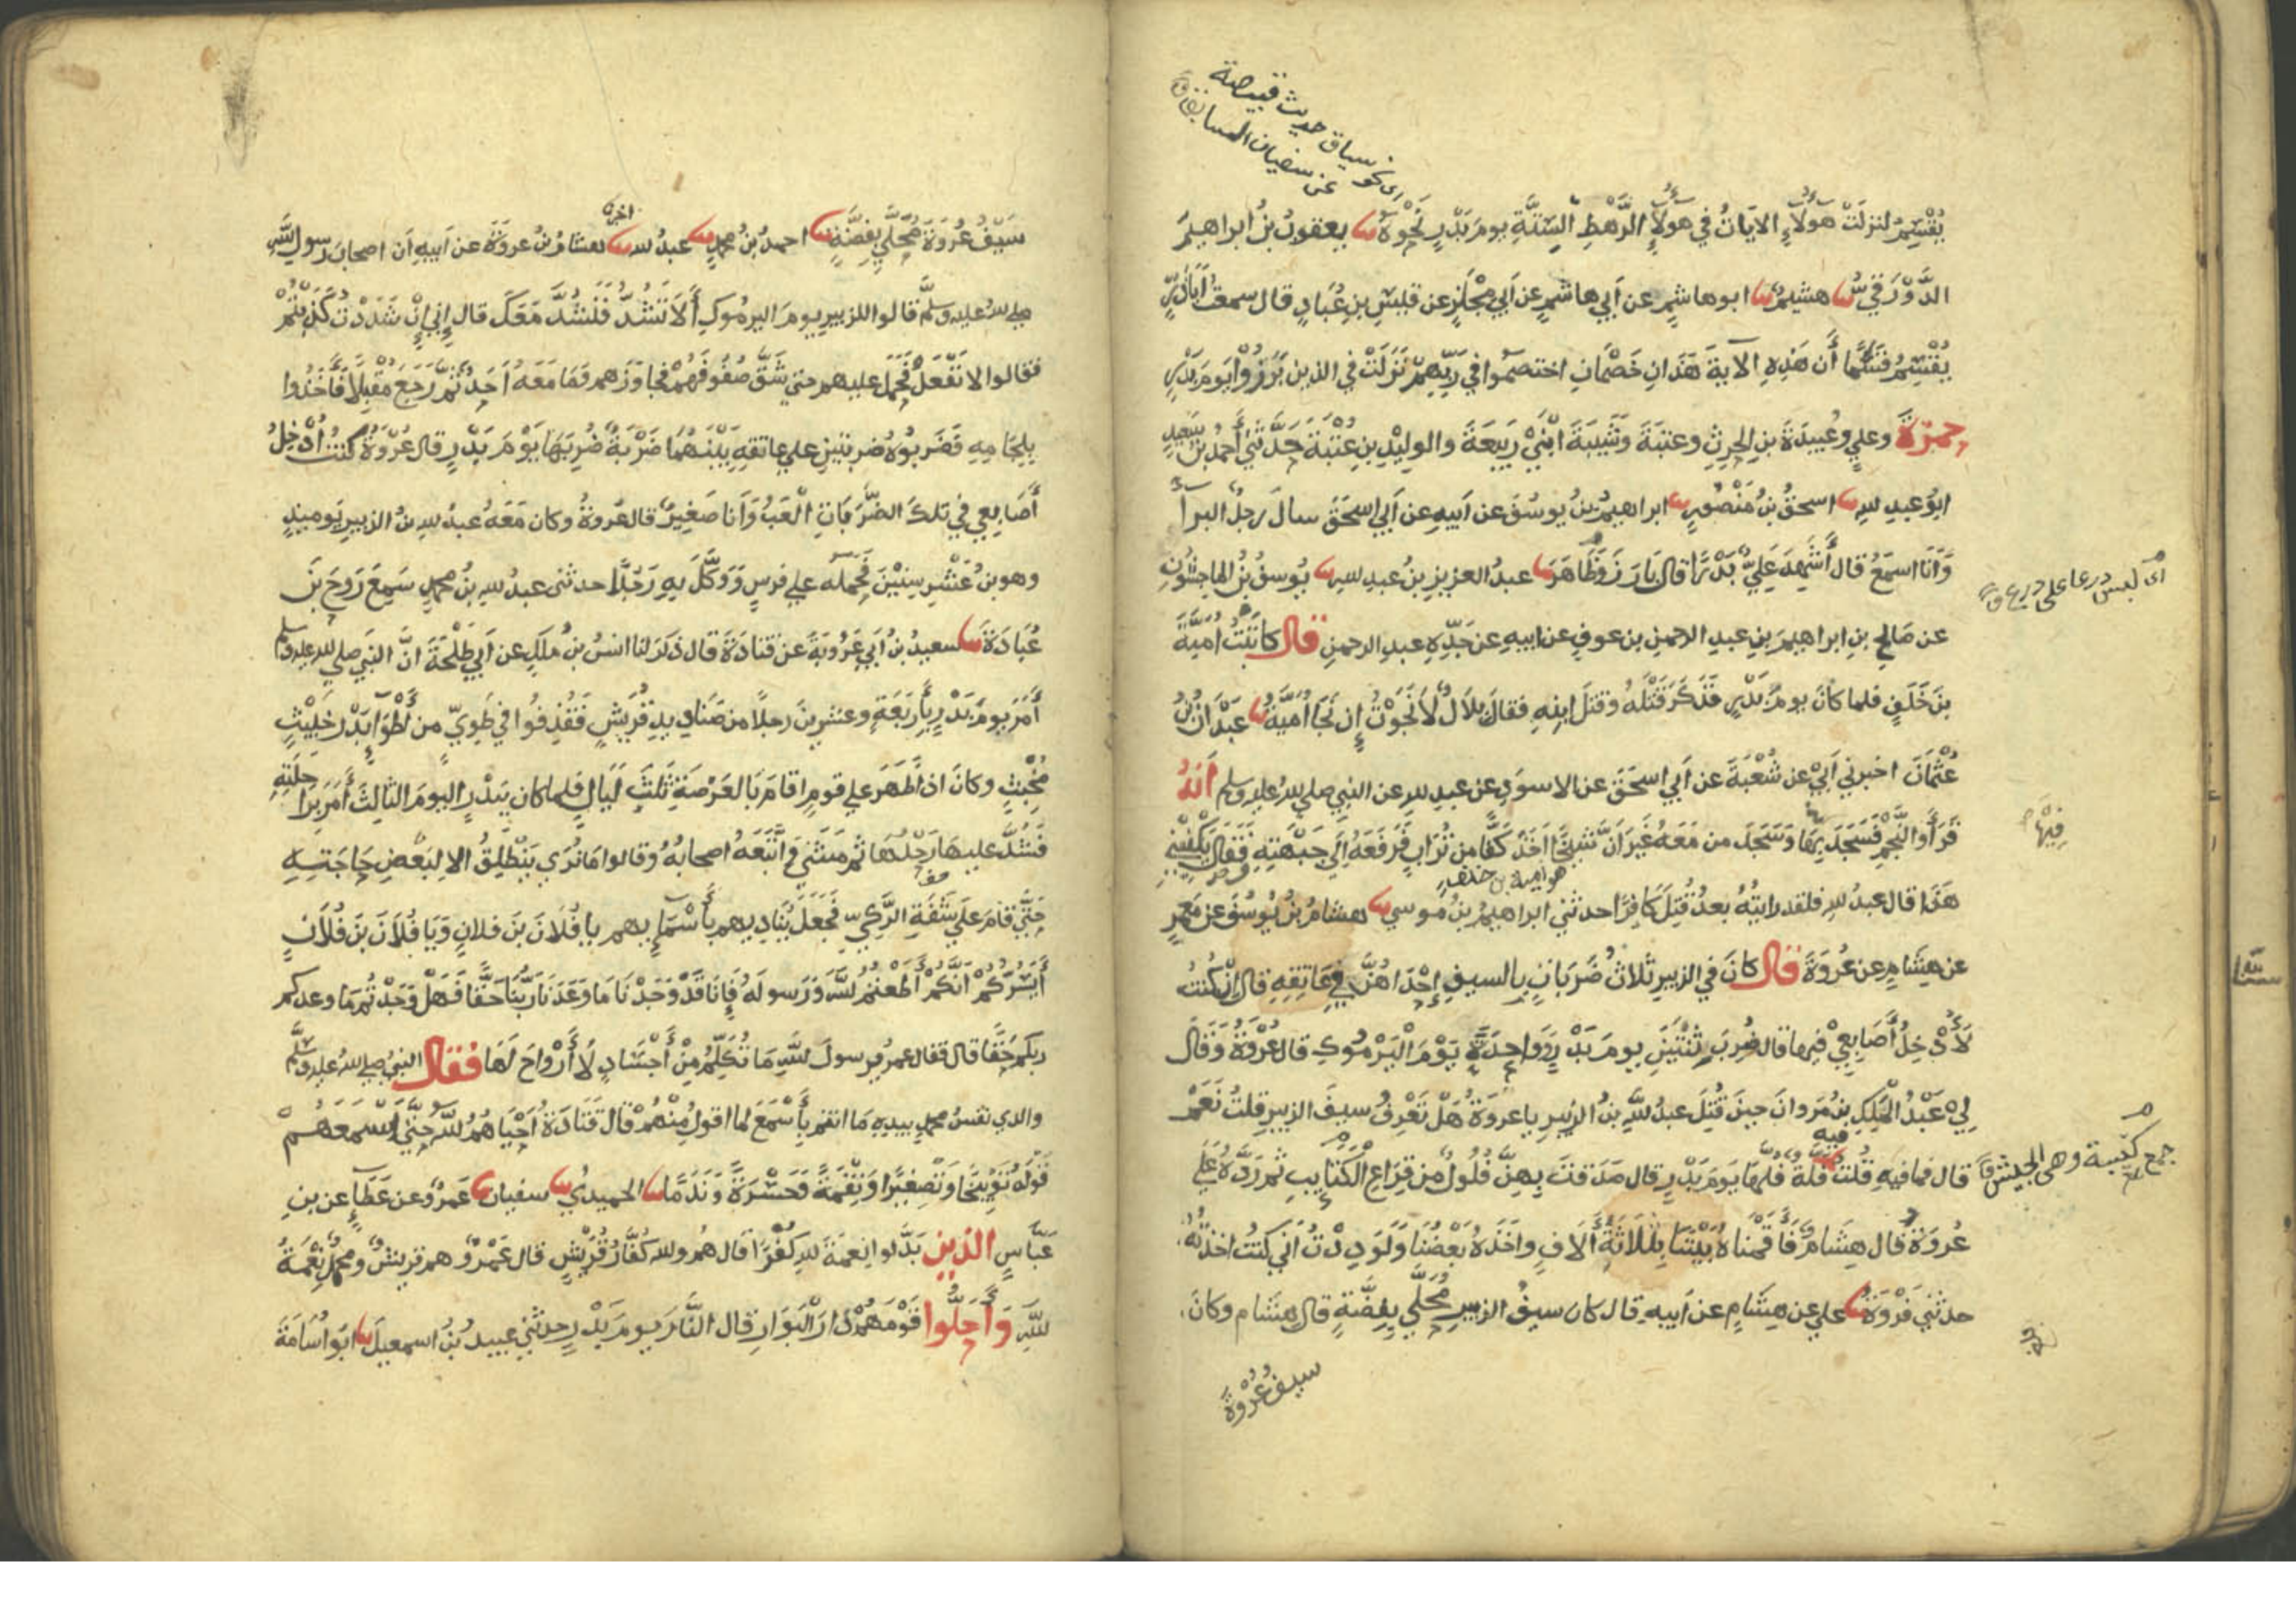 اى نحو سياق حديث قبيصة
عن سفيان السابق
يُقْسِمُ لنزلَتْ هَؤلَاءِ الاياتُ في هَؤلَاءِ الرَّهْطِ السِّتَّةِ يومَ بَدْرٍ نَحْوَهُ ثنا يعقوبُ بنُ ابراهيمَ
الدَّوْرَقِيُّ ثنا هشيمٌ ثنا ابو هاشمٍ عن أبي هاشمٍ عن أبي مِجْلَزٍ عن قيسِ بنِ عُبَادٍ قال سمعتُ أبا ذرٍّ
يُقْسِمُ قَسَمًا أَن هَذِهِ الآيةَ هَذَانِ خَصْمَانِ اختصَمُوا في رَبِّهِمْ نَزَلَتْ في الذين بَرَزُوْا يَومَ بَدْرٍ
حمزةَ وعليٍ وعُبيدَةَ بنِ الحرثِ وعتبةَ وشَيبَةَ ابْنَيْ رَبِيعَةَ والوليْدِ بنِ عُتْبَةَ حَدَّثني أَحمدُ بن سَعِيدٍ
ابوُ عبدِ للهِ ثنا اسحقُ بنُ مَنْصُورٍ ثنا ابراهيمُ بنُ يوسُفَ عن أبيهِ عن أبي اسحَقَ سالَ رجلٌ البرآ
وَأنَا اسمَعُ قال أَشَهِدَ عَلِيٌّ بَدْرًا قال بَارَزَ وَظَاهَرَ ثنا عبدُ العزيزِ بنُ عبدِ للهِ ثنا يُوسفُ بنُ الماجشُونِ
اى لبس درعا على درع ق
عن صَالحِ بنِ ابراهيمَ بنِ عبدِ الرحمنِ بن عوفٍ عن ابيهِ عن جَدِّهِ عبدِ الرحمنِ قال كاتبْتُ أُمَيَّةَ
بنَ خَلَفٍ فلما كَانَ يومُ بَدْرٍ فَذَكَرَ قَتْلَهُ وقتلَ ابنِهِ فقالَ بِلاَلٌ لَا نَجَوْتُ إِن نَجَا أُمَيَّةُ ثنا عَبْدَانُ بنُ
عُثْمَانَ اخبرني أبي عن شُعْبَةَ عن أبي اسحَقَ عن الاسودِ عن عبدِ للهِ عن النبي صلى للهُ عليه وسلم أنَّهُ
قَرَأَ والنَّجْمِ فَسَجَدَ بِهَا وَسَجَدَ من مَعَهُ غَيرَ أنَّ شَيْخًا اَخَذَ كَفًّا من تُرَابٍ فَرَفَعَهُ إلَي جَبْهَتِهِ فَقَالَ يَكْفِيْنِي
فِيْهَا
هو امية بن خلف
هَذَا قال عبدُ للهِ فلقد رايتُهُ بعدُ قُتِلَ كَافِرًا حدثني ابراهيمُ بنُ مُوسي ثنا هشامُ بنُ يُوسُفَ عن مَعمرٍ
عن هِشَامٍ عن عُرْوَةَ قال كانَ في الزبيرِ ثَلاثُ ضَرَبَاتٍ بالسيفِ إِحْدَاهُنَّ في عَاتِقِهِ قال إِنْ كُنْتُ
لَأُدْخِلُ أَصَابِعِي فيها قال ضُرِبَ ثِنْتَيْنِ يومَ بَدْرٍ وَوَاحِدَةً يَوْمَ الْيَرْمُوكِ قال عُرْوَةُ وَقَال
لِي عَبْدُ المَلِكِ بنُ مَروانَ حينَ قُتِلَ عبدُ للهِ بنُ الزبيرِ يا عروَةُ هَلْ تَعْرِفُ سيفَ الزبيرِ قلتُ نَعَمْ
فيه
قال فما فيهِ قُلْتُ فَلَّةٌ فُلَّهَا يَوْمَ بَدْرٍ قال صَدَقْتَ بِهِنَّ فُلُولٌ من قِرَاعِ الْكَتَايِبِ ثم رَدَّهُ عَلي
جمع كتيبة وهى الجيش ق
عُروَةَ قال هِشَامٌ فَأَقَمْنَاهُ بَيْنَنَا بِثَلَاثَةِ أَلَافٍ واَخَذَهُ بَعْضُنَا وَلَوَدِدْتُ اَنّي كنتُ اخذتُهُ
حدثني فَرْوَةُ ثنا علي عن هِشَامٍ عن اَبيهِ قال كان سيفُ الزبيرِ مُحَلَّي بِفِضَّةٍ قال هِشَام وكانَ
سيفُ عُرْوَةَ
سَيْفُ عُرْوَةَ مُحَلَّي بِفِضَّةٍ ثنا احمدُ بنُ محمدٍ ثنا عبدُ لله ثنا هشامُ بنُ عروَةَ عن اَبيهِ اَن اصحابَ رسولِ للَّهِ
اخبرنا
صلى للهُ عليه وسلَّم قَالوا للزبيرِ يومَ اليرمُوكِ أَلَا تَشُدُّ فَنَشُدَّ مَعَكَ قال إِنِي إِنْ شَدَدْتُ كَذَبْتُمْ
فقالوا لا نَفْعَلُ فَحَمَلَ عليهم حتي شَقَّ صُفُوفَهُمْ فجاوَزَهم وَمَا مَعَهُ اَحَدٌ ثُمَّ رَجَعَ مُقْبِلًا فَأَخَذُوا
بلِجَامِهِ فَضَربُوْهُ ضربتينِ علي عاتقهِ بَيْنَهُمَا ضَرْبةٌ ضُرِبَهَا يَوْمَ بَدْرٍ قال عُرْوَةُ كنتُ أُدْخِلُ
أَصَابِعِي فِي تلكَ الضَّرَبَاتِ أَلْعَبُ وَأَنا صَغِيرٌ قال عُروةُ وكان مَعَهُ عبدُ للهِ بنُ الزبيرِ يَوميذٍ
وهو بنُ عَشْرِ سِنِيْنَ فحمله علي فرسٍ وَوَكَّلَ بِهِ رَجُلًا حدثني عبدُ للهِ بنُ محمدٍ سَمِعَ رَوحَ بنَ
عُبَادَةَ ثنا سعيدُ بنُ أَبِي عَرُوْبَةَ عن قتادَةَ قال ذكَرَ لنا انسُ بنُ ملكٍ عن أَبِي طَلْحَةَ انَّ النَبي صلي للهُ عليه وسلم
أَمَرَ يومَ بَدْرٍ بِأَرْبَعَةٍ وعشرينَ رجلًا من صَنَادِيدِ قُرَيشٍ فَقُذِفُوا في طَوِيٍّ من أَطْوَآءِ بَدْرٍ خَبِيْثٍ
مُخْبِثٍ وكانَ اذا ظَهَرَ علي قومٍ اقامَ بَالعَرْصَةِ ثَلثَ لَيَالٍ فلما كان بِبَدْرٍ اليومَ الثالثَ أَمَرَ بِرَاحِلَتِهِ
فَشُدَّ عليها رَحْلُهَا ثم مَشَي وَاتَّبَعَهُ اصحابُهُ وقالوا مَا نُرَي يَنْطَلِقُ الا لبَعضِ حَاجَتِهِ
حَتَّي قامَ عَلَى شَفَةِ الرَّكِيِّ فَجَعَلَ يُنَادِيهم بِأَسْمَايهم يا فُلَانُ بنَ فلانٍ وَيَا فُلَانُ بنَ فُلَانٍ
أَيَسُرُّكُمْ أَنَّكُمْ أَطَعْتُمُ للَّهَ وَرَسولَهُ فَإِنَا قَدْ وَجَدْنَا مَا وَعَدَنَا رَبُّنَا حَقًّا فَهَلْ وَجَدْتُم مَا وعدكم
ربكم حَقًّا قال فقال عمرُ يرسولَ للَّهِ مَا تُكَلِّمُ مِنْ أَجْسَادٍ لَا أَرْوَاحَ لَهَا فَقَال النبيُ صلي للهُ عليه وسلَّم
والذي نفسُ محمدٍ بيدِهِ مَا انتم بِأَسْمَعَ لما اقولُ مِنْهُمْ قال قَتَادَةُ اَحْيَاهُمُ للَّهُ حَتَّي أَسْمَعَهُمْ
قَوْلَهُ تَوْبِيْخًا وَتَصْغِيْرًا وَنِقْمَةً وَحَسْرَةً وَنَدَمًا ثنا الحميدُي ثنا سفيانُ ثنا عَمرٌو عن عَطَآءٍ عن بنِ
عَبَّاسٍ الذين بَدَّلوا نِعمَةَ للهِ كُفْرًا قال هُم وللهِ كُفَّارُ قُرَيْشٍ قال عَمْرٌو هم قريشٌ ومحمدٌ نِعْمَةُ
للَّهِ وَأَحَلُّوا قَوْمَهُمْ دَارَ الْبَوَارِ قال النَّارَ يومَ بَدْرٍ حدثَني عبيدُ بنُ اسمعيلَ ثنا ابَو أُسَامَةَ